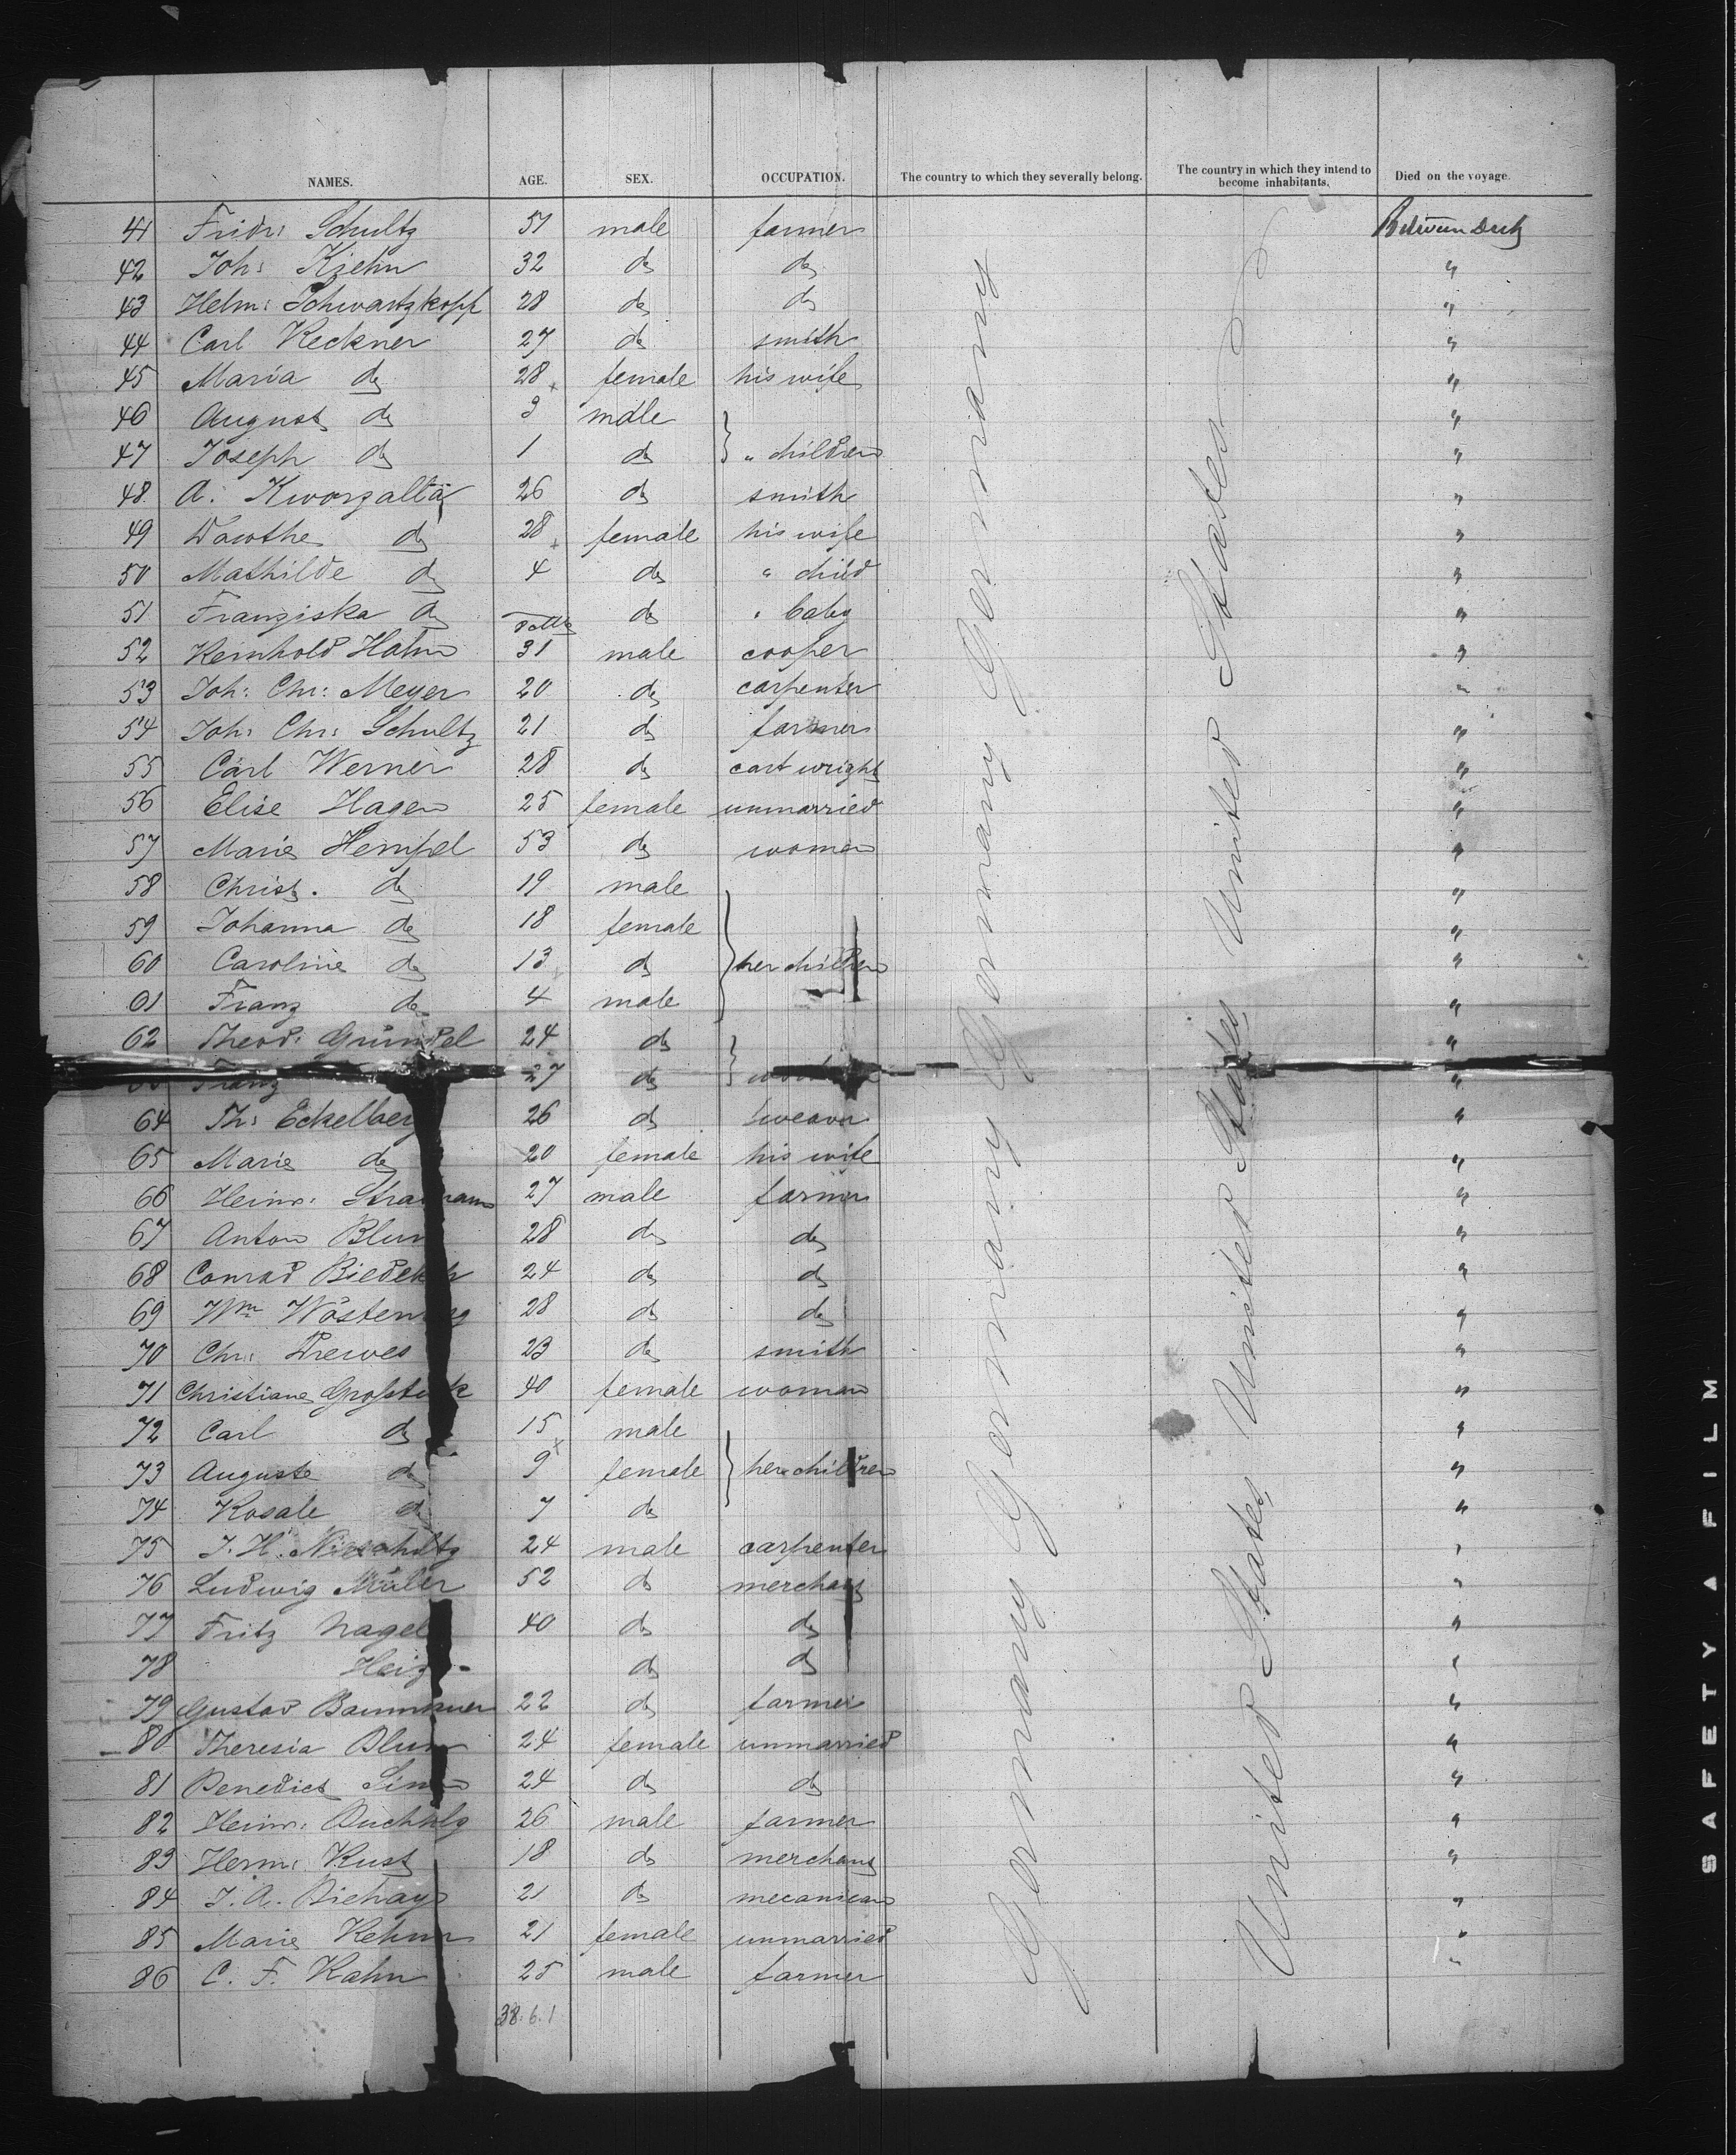 NAMES. AGE. SEX. OCCUPATION. The country to which they severally belong. The country in which they intend to become inhabitants. Died on the voyage.
41 Fridr: Schultz 51 male farmer Between Deck
42 Joh: Kiehn 32 do do "
43 Helm: Schwartzkopf 28 do do "
44 Carl Keckner 27 do smith "
45 Maria do 28 female his wife "
46 August do 3 male "
47 Joseph do 1 do " children "
48 A. Kworzalla 26 do smith "
49 do 28 female his wife "
50 Mathilde do 4 do " child "
51 Franziska do do " baby "
52 Reinhold Hahn 31 male cooper "
53 Joh: Chr: Meyer 20 do carpenter "
54 Joh: Chr: Schultz 21 do farmer "
55 Carl Werner 28 do cart wright "
56 Elise Hagen 25 female unmarried "
57 Marie Hempel 53 do woman "
58 Christ. do 19 male "
59 Johanna do 18 female "
60 Caroline do 13 do her children "
61 Franz do 4 male "
62 Theod: Gründel 24 do "
Franz 27 do "
64 Th: Eckelberg 26 do weaver "
65 Marie do 20 female his wife "
66 Heinr: 27 male farmer "
67 Anton Blum 28 do do "
68 Conrad 24 do do "
69 Wm 28 do do "
70 Chr: Drewes 23 do smith "
71 Christiane 40 female woman "
72 Carl do 15 male "
73 Auguste do 9 female her children "
74 Rosale do 7 do "
75 J. H. 24 male carpenter "
76 Ludwig Müller 52 do merchant "
77 Fritz Nagel 40 do do "
78 do do "
79 Gustav 22 do farmer "
80 Theresia Blum 24 female unmarried "
81 Benedict 24 do do "
82 Heinr: Buchholz 26 male farmer "
83 Herm: Kust 18 do merchant "
84 J. A. 21 do mecanican "
85 Marie 21 female unmarried "
86 C. F. Kahn 25 male farmer "
38.6.1
Germany Germany Germany Germany Germany
United States United States United States
SAFETY ▲ FILM